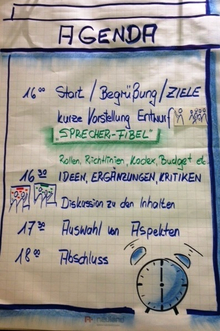 AGENDA
16⁰⁰ Start / Begrüßung / ZIELE
kurze Vorstellung Entwurf
"SPRECHER-FIBEL"
Rollen, Richtlinien, Kodex, Budget etc.
16³⁰ IDEEN, ERGÄNZUNGEN, KRITIKEN
Diskussion zu den Inhalten
17³⁰ Auswahl von Aspekten
18⁰⁰ Abschluss